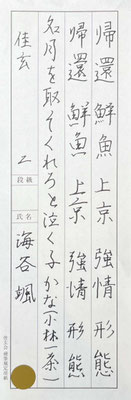 帰還 鮮魚 上京 強情 形態
帰還 鮮魚 上京 強情 形態
名月を取てくれろと泣く子かな(小林一茶)
佳玄
2
段級
氏名
海谷颯